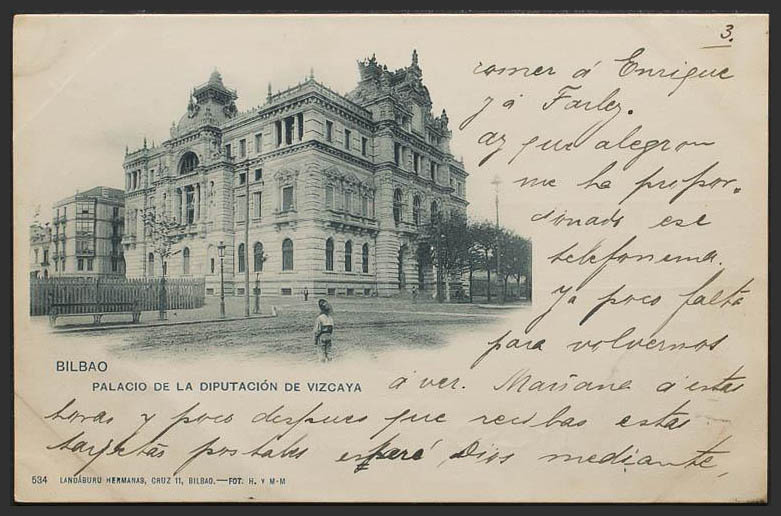 3.
comer á Enrique
y á Farlez.
ay que alegron
me ha propor-
cionado ese
telefonema.
ya poco falta
para volvernos
BILBAO
PALACIO DE LA DIPUTACIÓN DE VIZCAYA
á ver. Mañana á estas
horas y poco despues que recibas estas
tarjetas postales esperé Dios mediante,
534 LANDÁBURU HERMANAS, CRUZ 11, BILBAO.—FOT. H. Y M-M